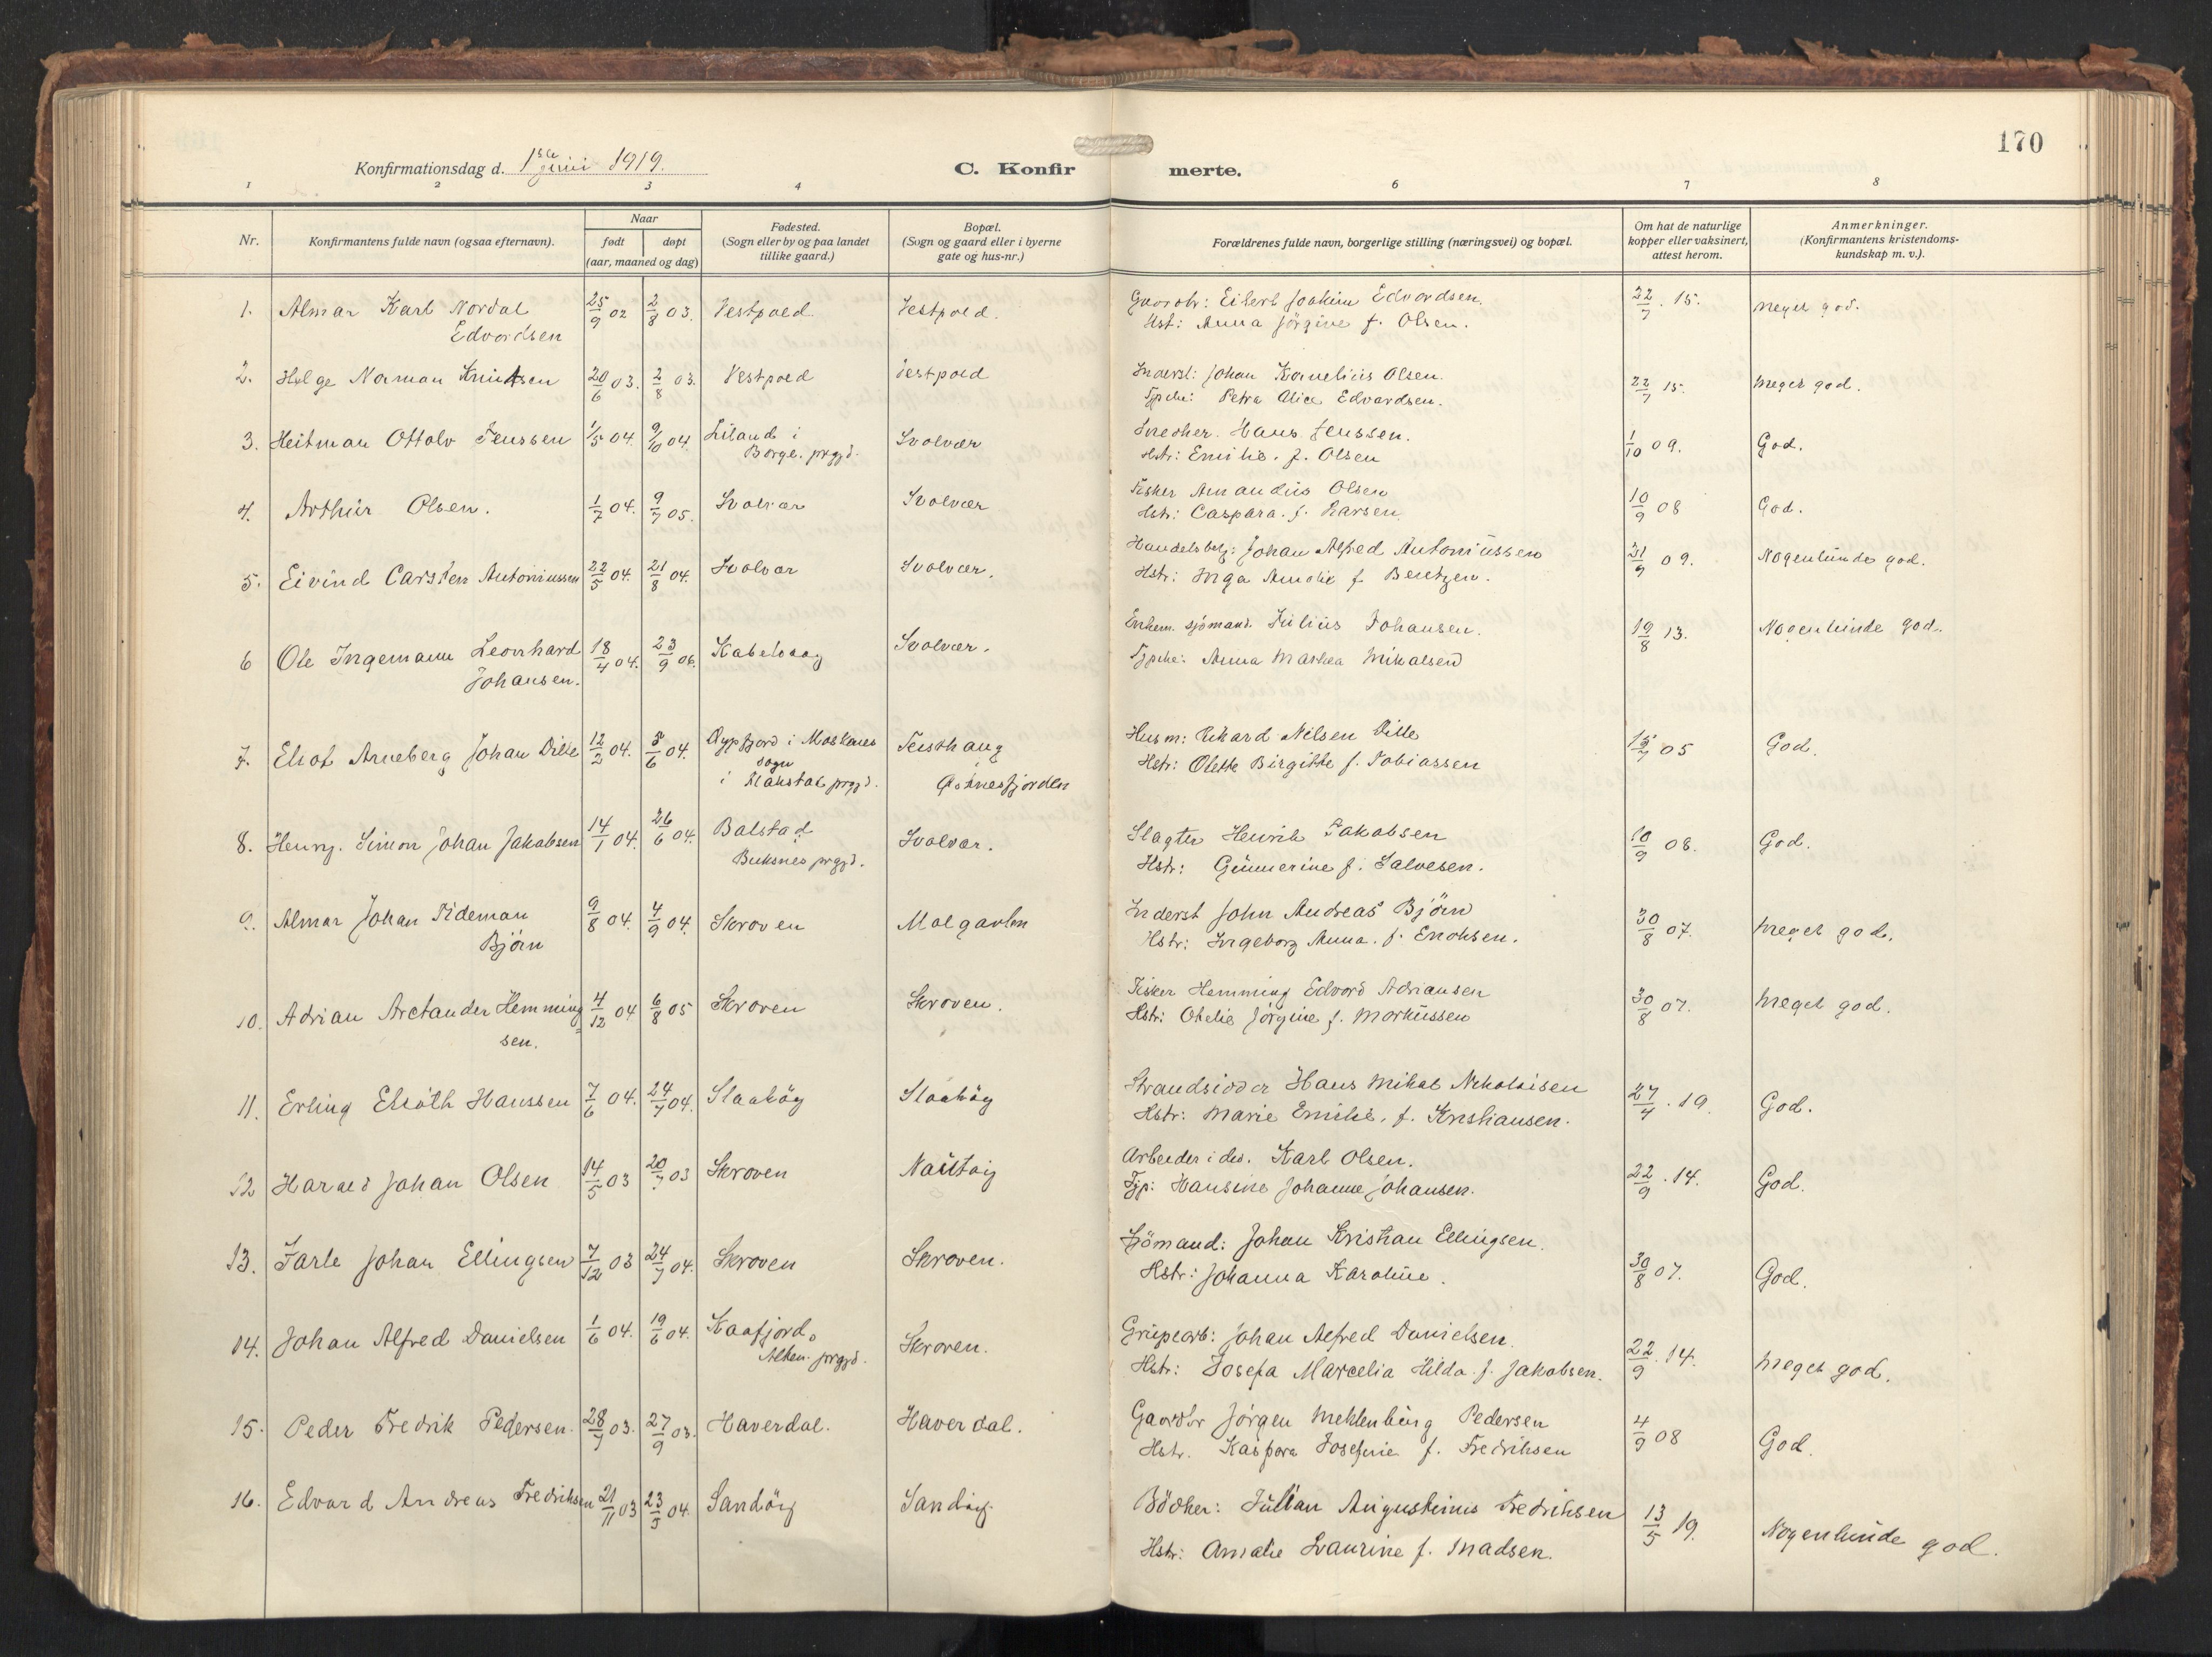 170
Konfirmationsdag d. 1ste juni 1919.
C. Konfirmerte.
1 2 3 4 6 7 8
Nr.
Konfirmantens fulde navn (ogsaa efternavn).
Naar
født
døpt
(aar, maaned og dag)
Fødested.
(Sogn eller by og paa landet
tillike gaard.)
Bopæl.
(Sogn og gaard eller i byerne
gate og hus-nr.)
Forældrenes fulde navn, borgerlige stilling (næringsvei) og bopæl.
Om hat de naturlige
kopper eller vaksinert,
attest herom.
Anmerkninger.
(Konfirmantens kristendoms-
kundskap m. v.).
1. Almar Karl Nordal 25/9 02 2/8 03. Vestpold. Vestpold. Gaardbr: Eilert Joakim Edvardsen. 22/7. 15. Meget god.
Edvardsen Hst: Anna Jörgine f. Olsen.
2. Helge Norman Knutsen 20/6 03. 2/8 03. Vestpold Vestpold Inderst: Johan Kornelius Olsen. 22/7 15. Meget god.
Tjpike: Petra Alice Edvardsen.
3. Heitman Ottolv Jenssen 1/5 04. 9/10 04. Liland i Svolvær Snedker. Hans Jenssen. 1/10 09. God.
Borge. prgjd. Hstr: Emilie. f. Olsen
4. Arthur Olsen. 1/7 04. 9/7 05. Svolvær Svolvær Fisker Amandus Olsen 10/9 08 God.
Hstr: Caspara. f. Larsen
5. Eivind Carsten Antoniussen 22/5 04. 21/8 04. Svolvær Svolvær. Handelsbetj: Johan Alfred Antoniussen 21/9 09. Nogenlunde god.
Hstr: Inga Amalie f. Bentzen.
6 Ole Ingemann Leonhard 18/4 04. 23/9 06. Kabelvaag Svolvær. Enkem. sjömand. Julius Johansen. 19/8 13. Nogenlunde god.
Johansen. Tjpike: Anna Mathea Mikalsen
7. Eliot Arneberg Johan Dille 12/2 04. 5/6 04. i Moskenes Teisthaug Husm: Rikard Nilsen Dille 15/7 05 God.
sogn Hstr: Olette Birgitte f. Tobiassen
i prgjd.
8. Henry. Simon Johan Jakobsen 14/1 04. 26/6 04. Balstad Svolvær. Slagter Henrik Jakobsen 10/9 08. God.
Buksnes prgjd. Hstr: Gunnerine f. Salvesen.
9. Almar Johan Tideman 9/8 04. 4/9 04. Skroven Molgavlen Inderst John Andreas Björn 30/8 07. Meget god.
Björn Hstr: Ingeborg Anna. f. Enoksen.
10. Adrian Arctander Hemming 4/12 04 6/8 05 Skroven Skroven. Fisker Hemming Edvard Adriansen 30/8 07. Meget god.
sen. Hstr: Otelie Jörgine f. Markussen
11. Erling Elioth Hanssen 7/6 04. 24/7 04. Slaaköy Slaaköy Strandsidder Hans Mikal Nikolaisen 27/4. 19. God.
Hstr: Marie Emilie, f. Kristiansen.
12 Harald Johan Olsen 14/5 03 20/7 03 Skroven Nautöy Arbeider i do. Karl Olsen. 22/9. 14. God.
Tjp: Hansine Johanne Johansen.
13. Jarle Johan Ellingsen 7/12 03 24/7 04. Skroven Skroven. Sjömand: Johan Kristian Ellingsen. 30/8 07. God.
Hstr: Johanna Karoline.
14. Johan Alfred Danielsen 1/6 04. 19/6 04. Kaafjord, Skroven. Grupearb: Johan Alfred Danielsen. 22/9. 14. Meget god.
Alten. prgjd. Hstr: Josefa Marcelia Hilda. f. Jakobsen.
15. Peder Fredrik Pedersen. 28/7 03. 27/9 03. Haverdal. Haverdal. Gaardbr Jörgen Meklenburg Pedersen 4/9 08 God.
Hstr. Kaspara Josefine f. Fredriksen
16. Edvard Andreas Fredriksen 21/11 03 23/5 04. Sandöy Sandöy. Bödker: Julian Augustinus Fredriksen 13/5 19. Nogenlunde god.
Hstr: Amalie Laurine f. Madsen.